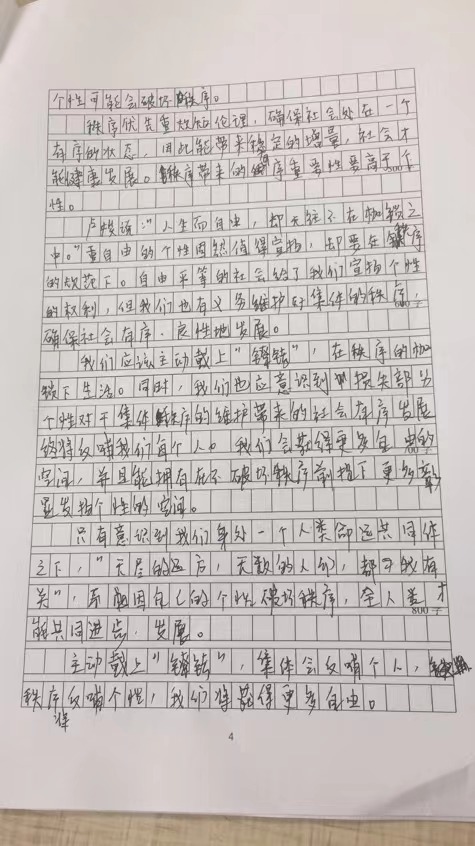 个性可能会破坏秩序。
秩序优先重效知伦理，确保社会处在一个
有序的状态，因此能带来稳定的增量，社会才
能健康发展。秩序带来的有序重要性要高于个
性。
卢梭说："人生而自由，却无往不在枷锁之
中。"重自由的个性固然值得宣扬，却要在秩序
的规范下。自由平等的社会给了我们宣扬个性
的权利，但我们也有义务维护好集体的秩序，
600字
确保社会有序、良性地发展。
我们应该主动戴上"镣铐"，在秩序的枷
锁下生活。同时，我们也应意识到损失部分
个性对于集体秩序的维护带来的社会有序发展
终将反哺我们每个人。我们会获得更多自由的
700字
空间，并且能拥有在不破坏秩序前提下更多彰
显发扬个性的空间。
只有意识到我们身处一个人类命运共同体
之下，"无尽的远方，无数的人们，都与我有
关"，不因自己的个性破坏秩序，全人类才
800字
能共同进步、发展。
主动戴上"镣铐"，集体会反哺个人，
秩序反哺个性，我们将获得更多自由。
得
4